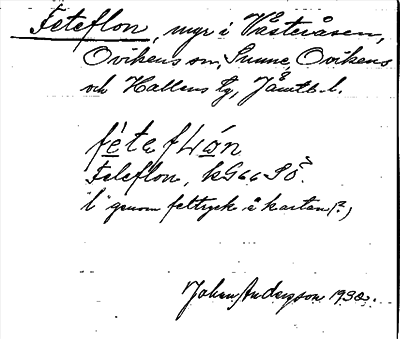 Feteflon, myr i Västeråsen,
Ovikens sn, Sunne, Ovikens
och Hallens tg, Jämtl. l.
fètefLón
Feteflon, kG66SÖ.
"l" genom feltryck å kartan(?)
Johan Andersson 1930.